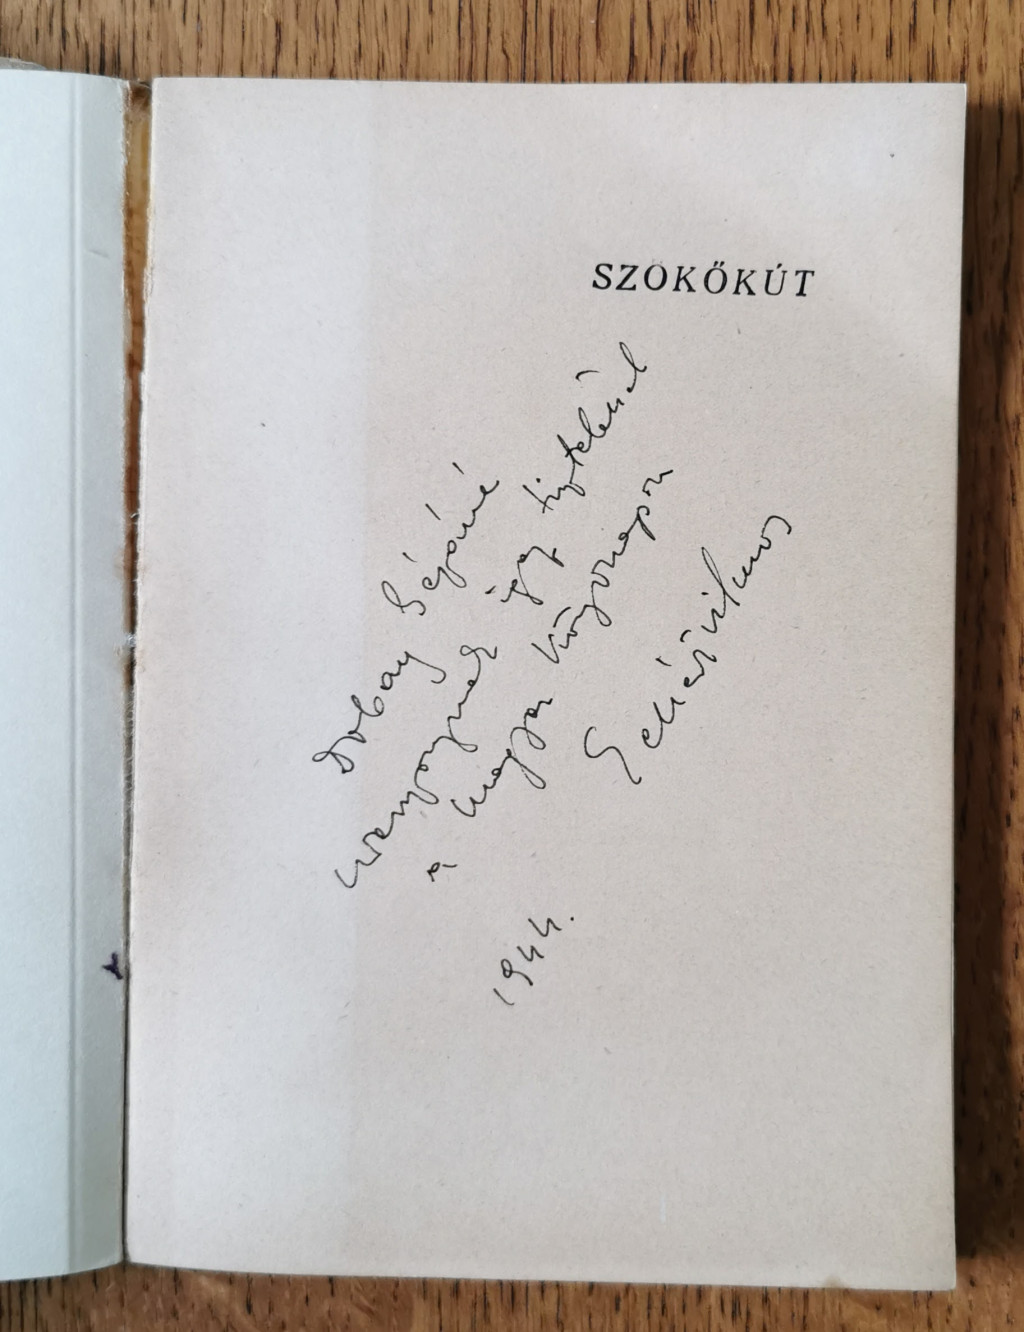 SZOKŐKÚT
Dobay Gézáné
igaz tisztelettel
a magyar könyvnapon
1944.